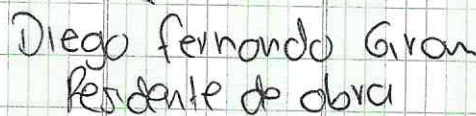 Diego fernando Giron
Residente de obra